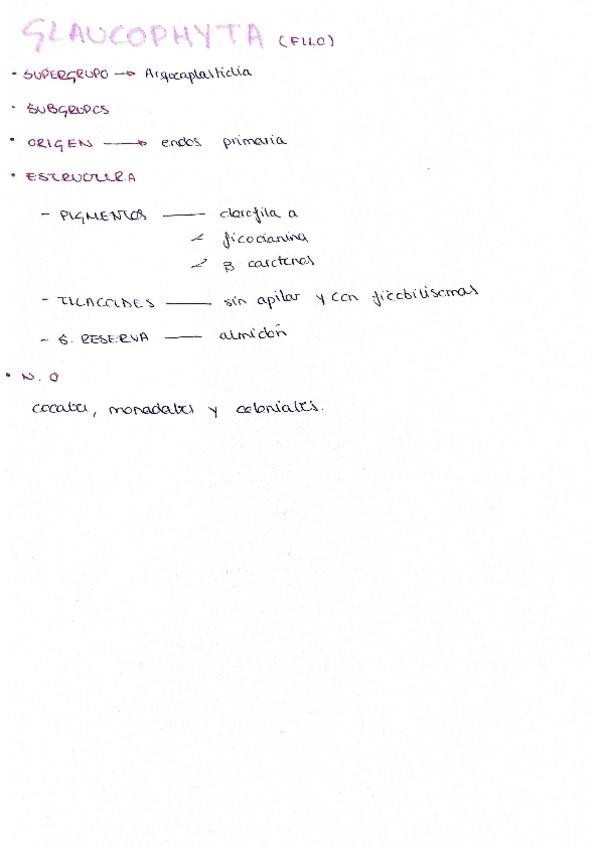 GLAUCOPHYTA (FILO)
· SUPERGRUPO → Arqocaplastidia
· SUBGRUPOS
· ORIGEN → endos primaria
· ESTRUCTURA
- PIGMENTOS — clorofila a
ficocianina
β carotenos
- TILACOIDES — sin apilar y con ficobilisomas
- S. RESERVA — almidón
· N. O
cocales, monadales y coloniales.